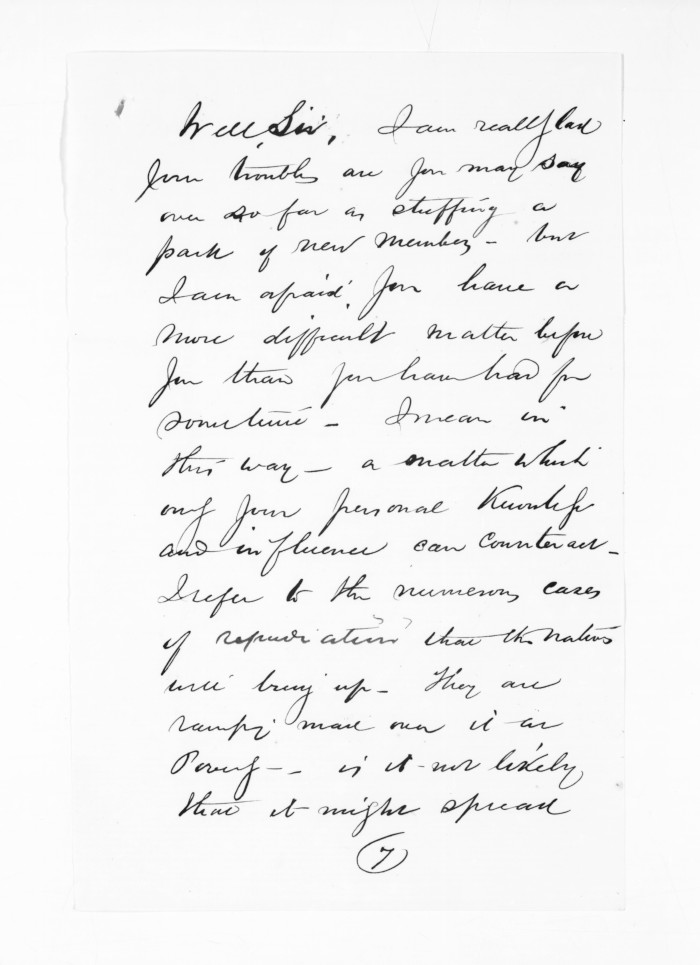 Well, Sir, I am really glad
your troubles are you may say
over so far as stuffing a
pack of new members - but
I am afraid you have a
more difficult matter before
you than you have had for
sometime - I mean in
this way - a matter which
only your personal Knowledge
and influence can counteract -
I refer to the numerous cases
of repudiation that the natives
will bring up - They are
ramping mad over it at
- is it not likely
that it might spread
7